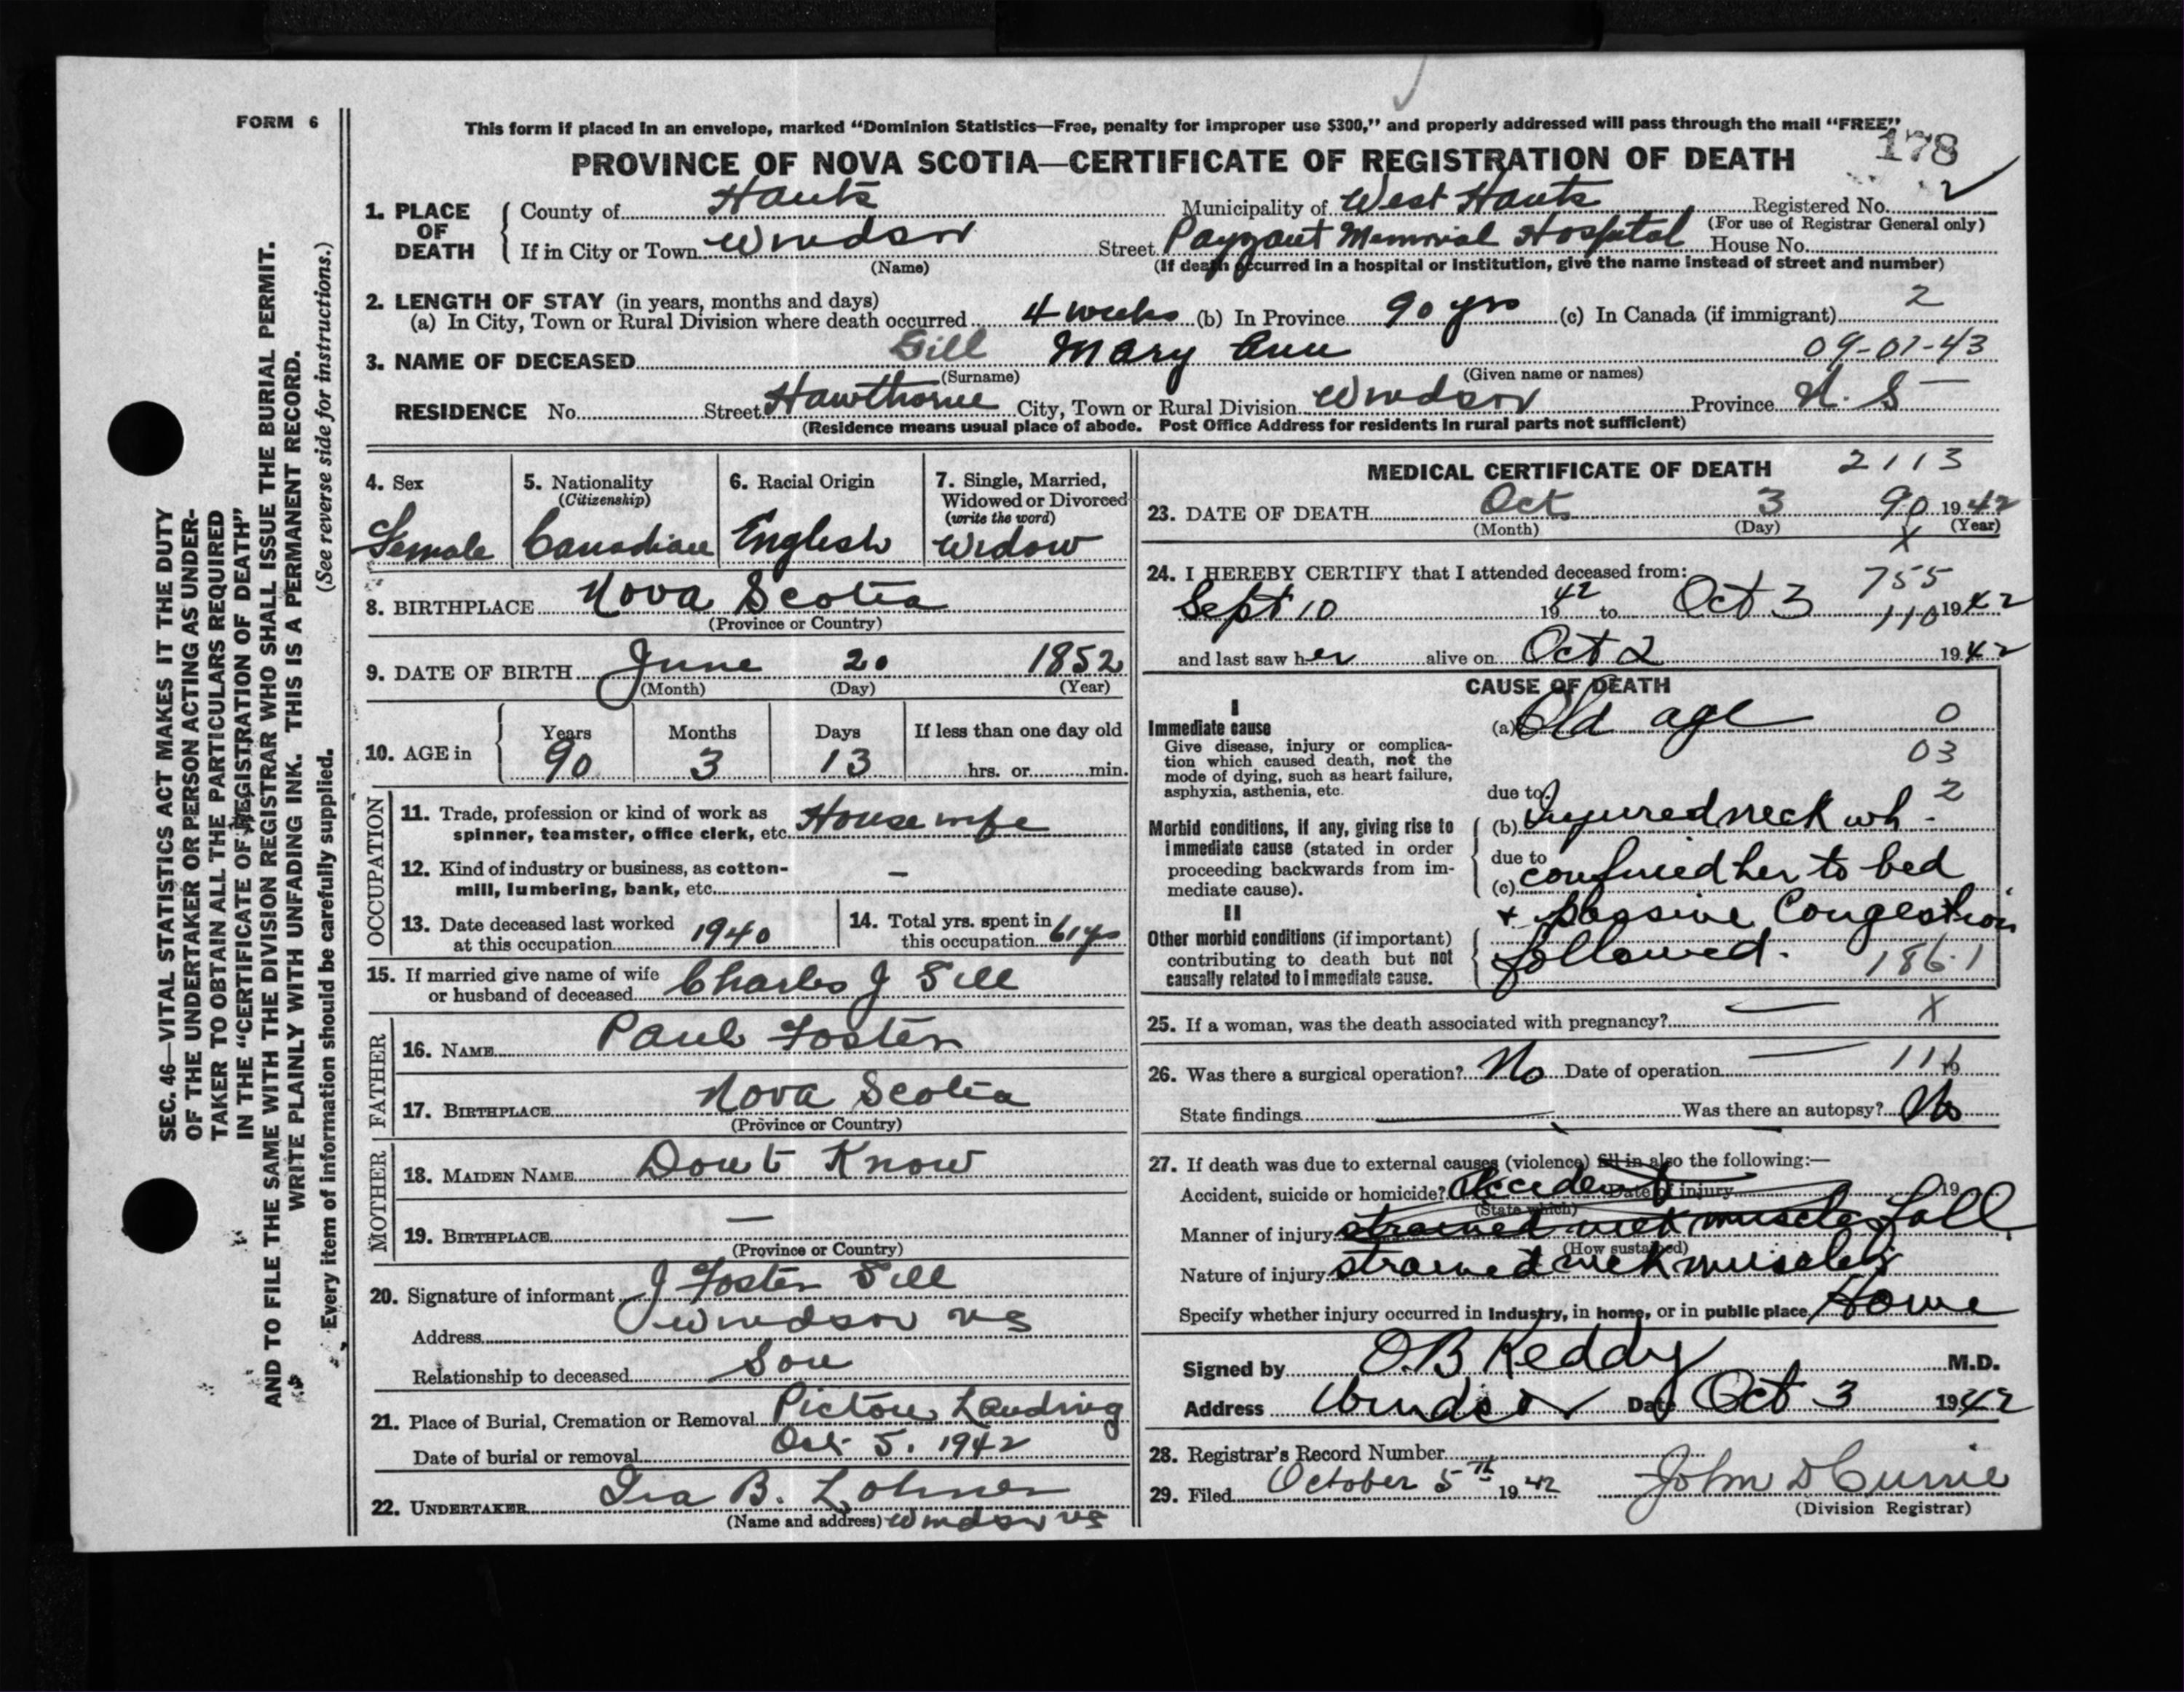 FORM 6
This form if placed in an envelope, marked "Dominion Statistics—Free, penalty for improper use $300," and properly addressed will pass through the mail "FREE"
178
PROVINCE OF NOVA SCOTIA—CERTIFICATE OF REGISTRATION OF DEATH
1. PLACE OF DEATH { County of Hants Municipality of West Hants Registered No. 2
(For use of Registrar General only)
If in City or Town Windsor Street Payzant Memorial Hospital House No.
(Name) (If death occurred in a hospital or institution, give the name instead of street and number)
2. LENGTH OF STAY (in years, months and days)
(a) In City, Town or Rural Division where death occurred 4 weeks (b) In Province 90 yrs (c) In Canada (if immigrant) 2
3. NAME OF DECEASED Sill Mary Ann 09-07-43
(Surname) (Given name or names)
RESIDENCE No. Street Hawthorne City, Town or Rural Division Windsor Province N.S
(Residence means usual place of abode. Post Office Address for residents in rural parts not sufficient)
4. Sex 5. Nationality 6. Racial Origin 7. Single, Married,
(Citizenship) Widowed or Divorced
(write the word)
Female Canadian English Widow
8. BIRTHPLACE Nova Scotia
(Province or Country)
9. DATE OF BIRTH June 20 1852
(Month) (Day) (Year)
10. AGE in { Years Months Days If less than one day old
90 3 13 hrs. or min.
OCCUPATION
11. Trade, profession or kind of work as
spinner, teamster, office clerk, etc. Housewife
12. Kind of industry or business, as cotton-
mill, lumbering, bank, etc. –
13. Date deceased last worked
at this occupation 1940
14. Total yrs. spent in
this occupation 61 yrs
15. If married give name of wife
or husband of deceased Charles J Sill
FATHER
16. NAME Paul Foster
17. BIRTHPLACE Nova Scotia
(Province or Country)
MOTHER
18. MAIDEN NAME Dont Know
19. BIRTHPLACE —
(Province or Country)
20. Signature of informant J Foster Sill
Address Windsor NS
Relationship to deceased Son
21. Place of Burial, Cremation or Removal Pictou Landing
Date of burial or removal Oct 5. 1942
22. UNDERTAKER Ira B. Lohnes
(Name and address) Windsor NS
MEDICAL CERTIFICATE OF DEATH 2113
23. DATE OF DEATH Oct 3 90 1942
(Month) (Day) (Year)
X
24. I HEREBY CERTIFY that I attended deceased from: 755
Sept 10 1942 to Oct 3 110 1942
and last saw her alive on Oct 2 1942
CAUSE OF DEATH
I
Immediate cause (a) Old age 0
Give disease, injury or complica-
tion which caused death, not the 03
mode of dying, such as heart failure,
asphyxia, asthenia, etc. due to 2
Morbid conditions, if any, giving rise to (b) Injured neck wh -
immediate cause (stated in order due to
proceeding backwards from im- (c) confined her to bed
mediate cause).
II + passive Congestion
Other morbid conditions (if important)
contributing to death but not followed. 186.1
causally related to immediate cause.
25. If a woman, was the death associated with pregnancy? — X
26. Was there a surgical operation? No Date of operation — 116 19
State findings Was there an autopsy? No
27. If death was due to external causes (violence) fill in also the following:—
Accident, suicide or homicide? Accident Date of injury 19
(State which)
Manner of injury strained neck muscles Fall
(How sustained)
Nature of injury strained neck muscles
Specify whether injury occurred in Industry, in home, or in public place Home
Signed by O.B Keddy M.D.
Address Windsor Date Oct 3 1942
28. Registrar's Record Number
29. Filed October 5th 1942 John D Currie
(Division Registrar)
SEC. 46—VITAL STATISTICS ACT MAKES IT THE DUTY
OF THE UNDERTAKER OR PERSON ACTING AS UNDER-
TAKER TO OBTAIN ALL THE PARTICULARS REQUIRED
IN THE "CERTIFICATE OF REGISTRATION OF DEATH"
AND TO FILE THE SAME WITH THE DIVISION REGISTRAR WHO SHALL ISSUE THE BURIAL PERMIT.
WRITE PLAINLY WITH UNFADING INK. THIS IS A PERMANENT RECORD.
Every item of information should be carefully supplied. (See reverse side for instructions.)